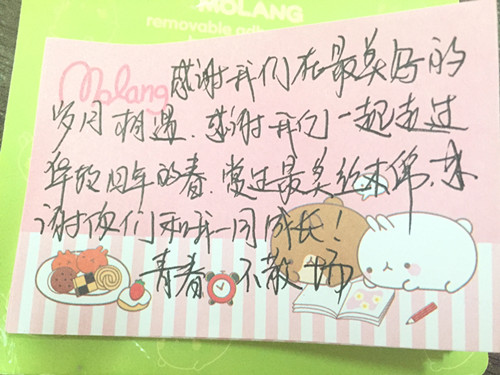 MOLANG
removable adh
Molang
感谢我们在最美好的
岁月相遇.感谢我们一起走过
年的春.最美
谢你们和我一同成长!
青春不散场